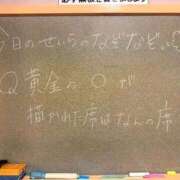 今日のせいらのなぞなぞ
Q 黄金の○が
描かれた席はなんの席